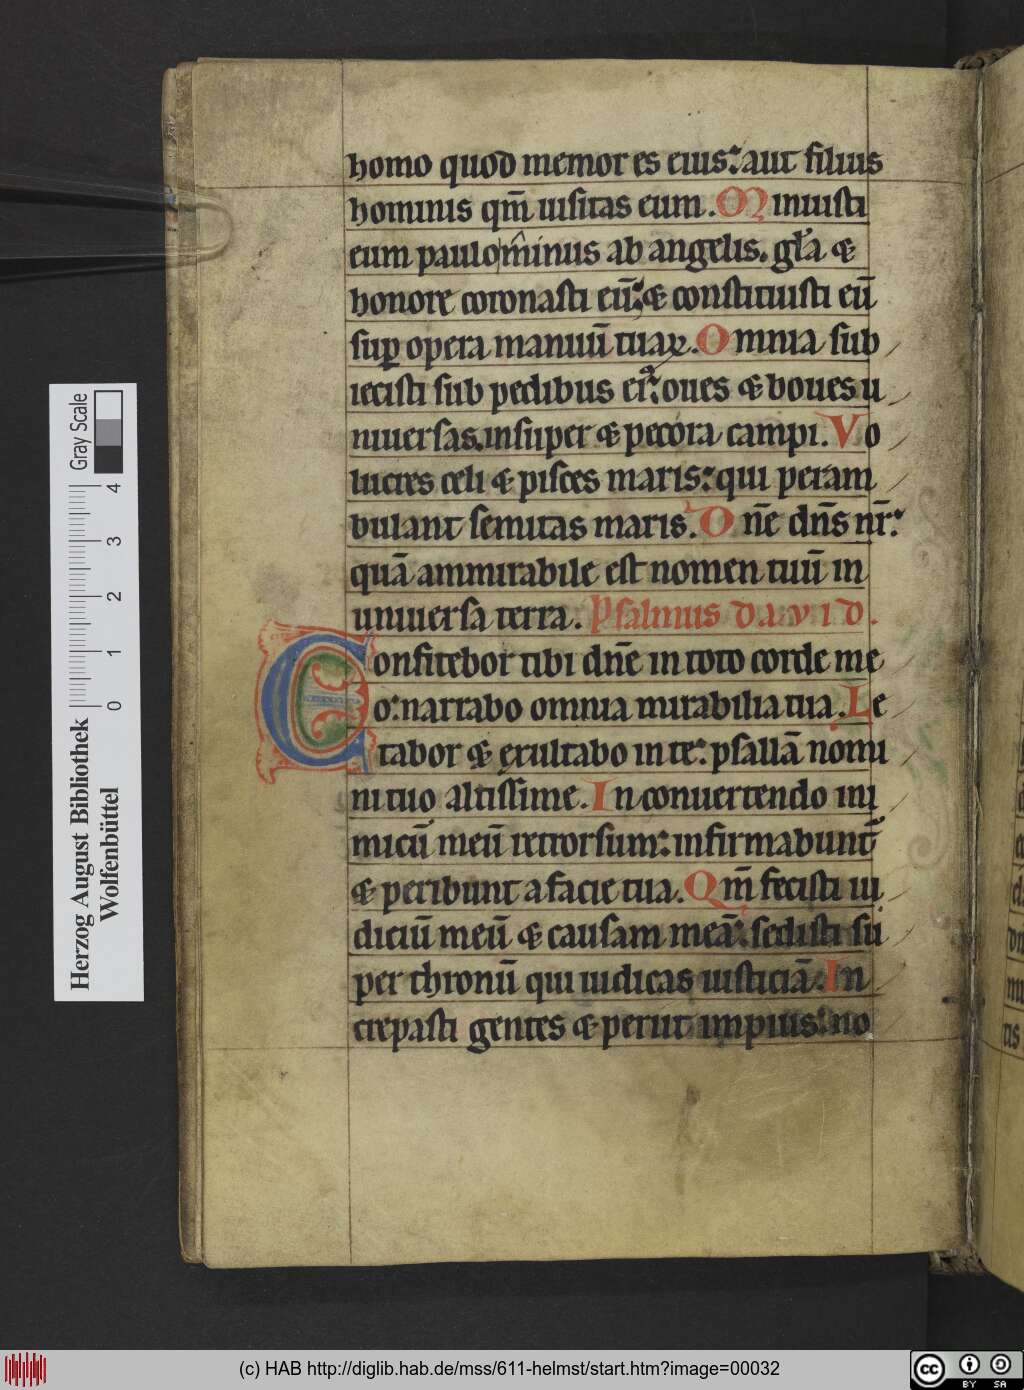 homo quod memor es eius: aut filius
hominis qm̄ uisitas eum. Minuisti
eum paulominus ab angelis. gl̄a &
honore coronasti eū: & constituisti eū
sup̱ opera manuū tuaꝝ. Omnia sub
iecisti sub pedibus eiꝰ: oues & boues u
niuersas. insuper & pecora campi. Vo
lucres celi & pisces maris: qui peram
bulant semitas maris. Dn̄e dn̄s nr̄:
quā ammirabile est nomen tuū in
uniuersa terra. Psalmus d.a.v.i.d.
Confitebor tibi dn̄e in toto corde me
o: narrabo omnia mirabilia tua. Le
tabor & exultabo in te: psallā nomi
ni tuo altissime. In conuertendo ini
micū meū retrorsum: infirmabunt̄
& peribunt a facie tua. Qm̄ fecisti iu
diciū meū & causam meā: sedisti su
per thronū qui iudicas iusticiā. In
crepasti gentes & periit impius: no
Gray Scale
0 1 2 3 4
Herzog August Bibliothek
Wolfenbüttel
(c) HAB http://diglib.hab.de/mss/611-helmst/start.htm?image=00032
cc BY SA